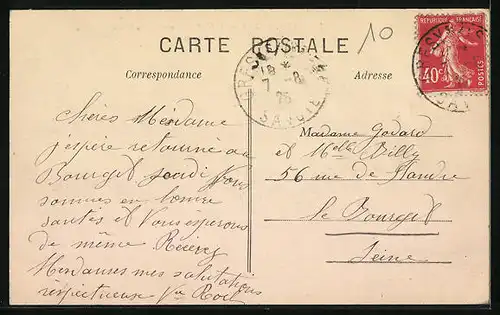 10
CARTE POSTALE
Correspondance
Adresse
REPUBLIQUE FRANÇAISE
40c
POSTES
18
7 - 8
25
SAVOIE
Chères Mesdame
j'espère retourné au
Bourget jeudi Nous
sommes en bonne
santés et Vous espérons
de même Recevez
Mesdames mes salutations
respectueuse Vve
Madame Godard
et Melle Billy
56 rue de Flandre
le Bourget
Seine